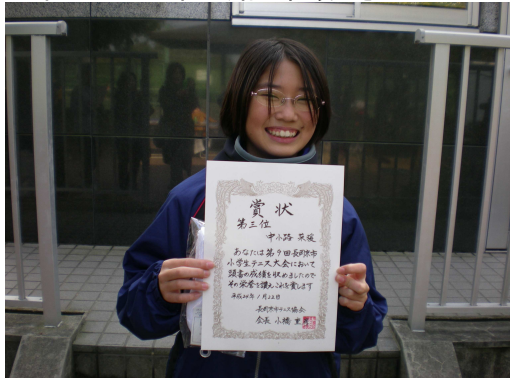 賞状
第三位
中小路 菜
あなたは第9回長岡京市
小学生テニス大会において
頭書の成績を収めましたので
その栄誉を讃えこれを賞します
平成24年1月22日
長岡京市テニス協会
会長 小橋